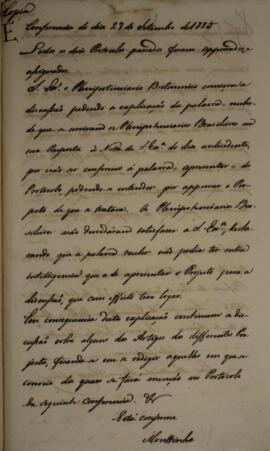 Copia
Conferencia do dia 27 de Setembro de 1825
Lido o dia Protocolo passado foram approvados e
assignados.
S. Ex.ª o Plenipotenciario Britannico começou a
discussão pedindo a explicação da palavra receber
de que se serviram os Plenipotenciarios Brasileiros na
sua Resposta à Nota de S. Ex.ª do dia antecedente,
por não ser conforme à palavra apresentar do
Protocolo, podendo-se entender por approvar o Pro-
jecto de que se tratava. Os Plenipotenciarios Bra-
sileiros não duvidaram satisfazer a S. Ex.ª, decla-
rando que a palavra receber não podia ter outra
intelligencia que a de apresentar o Projecto para a
discussão, que com effeito teve logar.
Em consequencia desta explicação continuou a dis-
cussão sobre alguns dos Artigos dos differentes Pro-
jectos, ficando-se em redigir aquelles em que se
concorreo dos quaes se fará menção no Protocolo
da seguinte Conferencia.
Está conforme